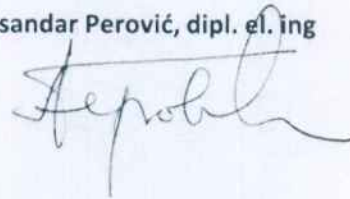 sandar Perović, dipl. el. ing